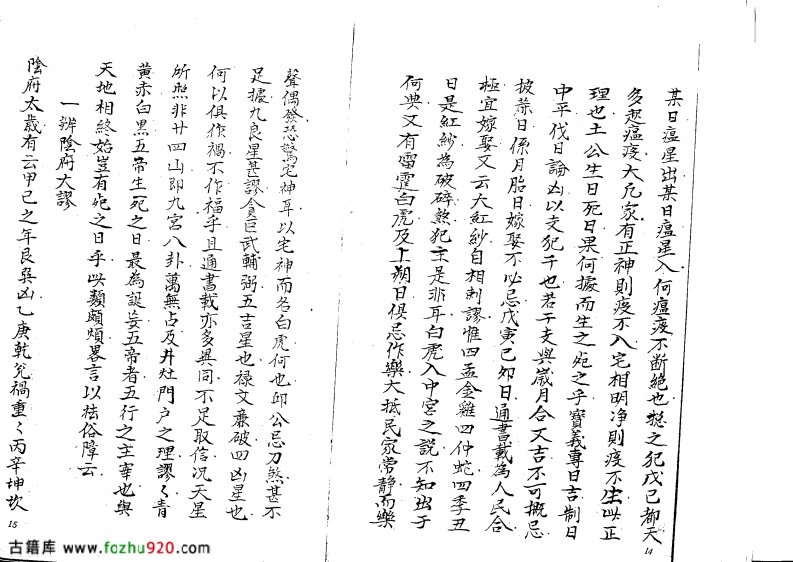 某日瘟星出某日瘟星入何瘟疫不断絕也總之犯戊己都天
多起瘟疫大凢家有正神則疫不入宅相明净則疫不生此正
理也土公生日死日果何據而生之死之乎寳義專日吉制日
中平伐日論凶以支犯干也若干支與嵗月合又吉不可概忌
披蔴日係月胎日嫁娶不必忌戊寅己夘日通書載為人民合
極宜嫁娶又云大紅紗自相刺謬惟四孟金雞四仲蛇四季丑
日是紅紗為破碎煞犯主是非耳白虎入中宮之說不知出于
何典又有雷霆白虎及上朔日俱忌作樂大抵民家常静而樂
14
聲偶發恐驚宅神耳以宅神而名白虎何也邱公忌刀煞甚不
足據九良星甚謬貪巨武輔弼五吉星也禄文亷破四凶星也
何以俱作禍不作福乎且通書載亦多異同不足取信况天星
所照非廿四山即九宮八卦萬無占及井灶門户之理謬〻青
黄赤白黒五帝生死之日最為誕妄五帝者五行之主宰也與
天地相終始豈有死之日乎此類頗煩畧言以祛俗障云
一辨陰府大謬
陰府太歲有云甲己之年艮巽凶乙庚乾兊禍重〻丙辛坤坎
15
古籍库 www.fozhu920.com